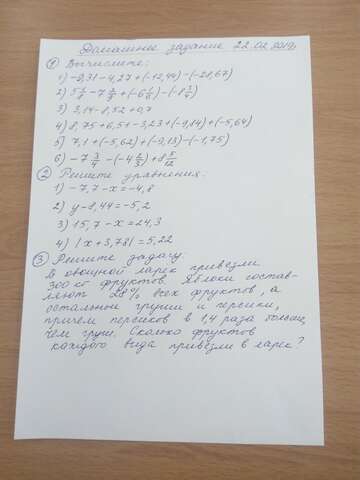 Домашнее задание 22.02.2019г.
① Вычислите:
1) -8,31-4,27+(-12,44)-(-28,67)
3) 3,14-8,52+0,7
4) 8,75+6,51-3,23+(-9,84)+(-5,64)
5) 7,1+(-5,62)+(-9,13)-(-1,75)
6) -7 3/4 -(-4 2/3)+8 5/12
② Решите уравнения.
1) -7,7-x=-4,8
2) y-8,44=-5,2
3) 15,7-x=24,3
4) |x+3,78|=5,22
③ Решите задачу.
В овощной ларек привезли
300 кг фруктов. Яблоки состав-
ляют 28% всех фруктов, а
остальное груши и персики,
причём персиков в 1,4 раза больше,
чем груш. Сколько фруктов
каждого вида привезли в ларек?